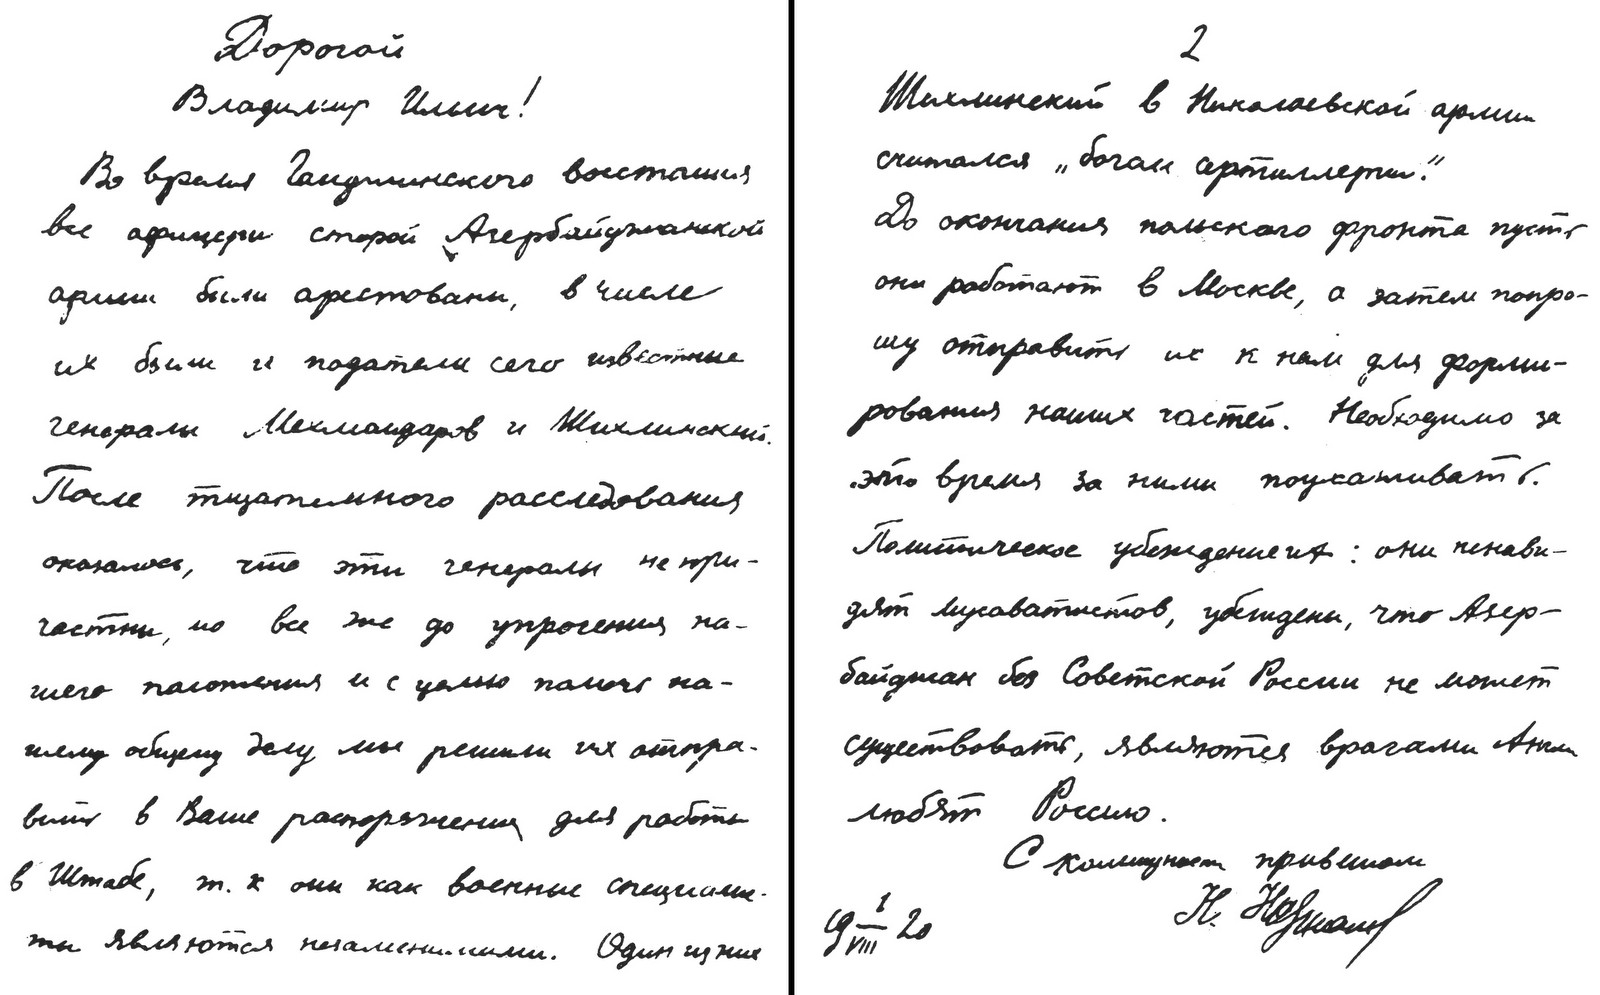 Дорогой
Владимир Ильич!
Во время Ганджинского восстания
все офицеры старой Азербайджанской
армии были арестованы, в числе
их были и податели сего известные
генералы Мехмандаров и Шихлинский.
После тщательного расследования
оказалось, что эти генералы не при-
частны, но все же до упрочения на-
шего положения и с целью помочь на-
шему общему делу мы решили их отпра-
вить в Ваше распоряжение для работы
в Штабе, т. к они как военные специалис-
ты являются незаменимыми. Один из них
2
Шихлинский в Николаевской армии
считался „богом артиллерии".
До окончания польского фронта пусть
они работают в Москве, а затем попро-
шу отправить их к нам для форми-
рования наших частей. Необходимо за
это время за ними поухаживать.
Политическое убеждение их: они ненави-
дят мусаватистов, убеждены, что Азер-
байджан без Советской России не может
существовать, являются врагами Англии
любят Россию.
С коммунист приветом
Н. Нариманов
19 1/VIII 20